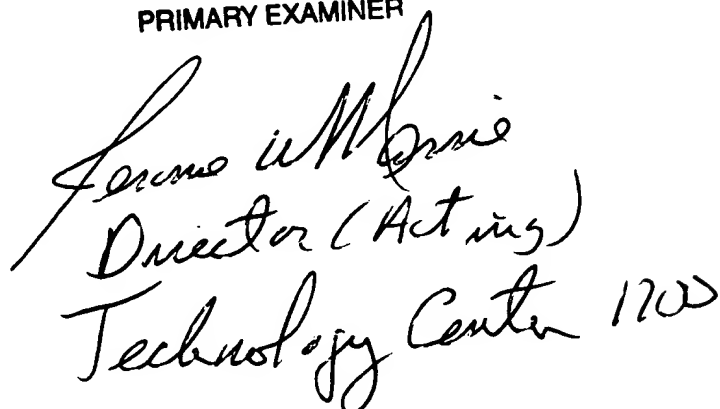 PRIMARY EXAMINER
Jerome W
Director (Acting)
Technology Center 1700